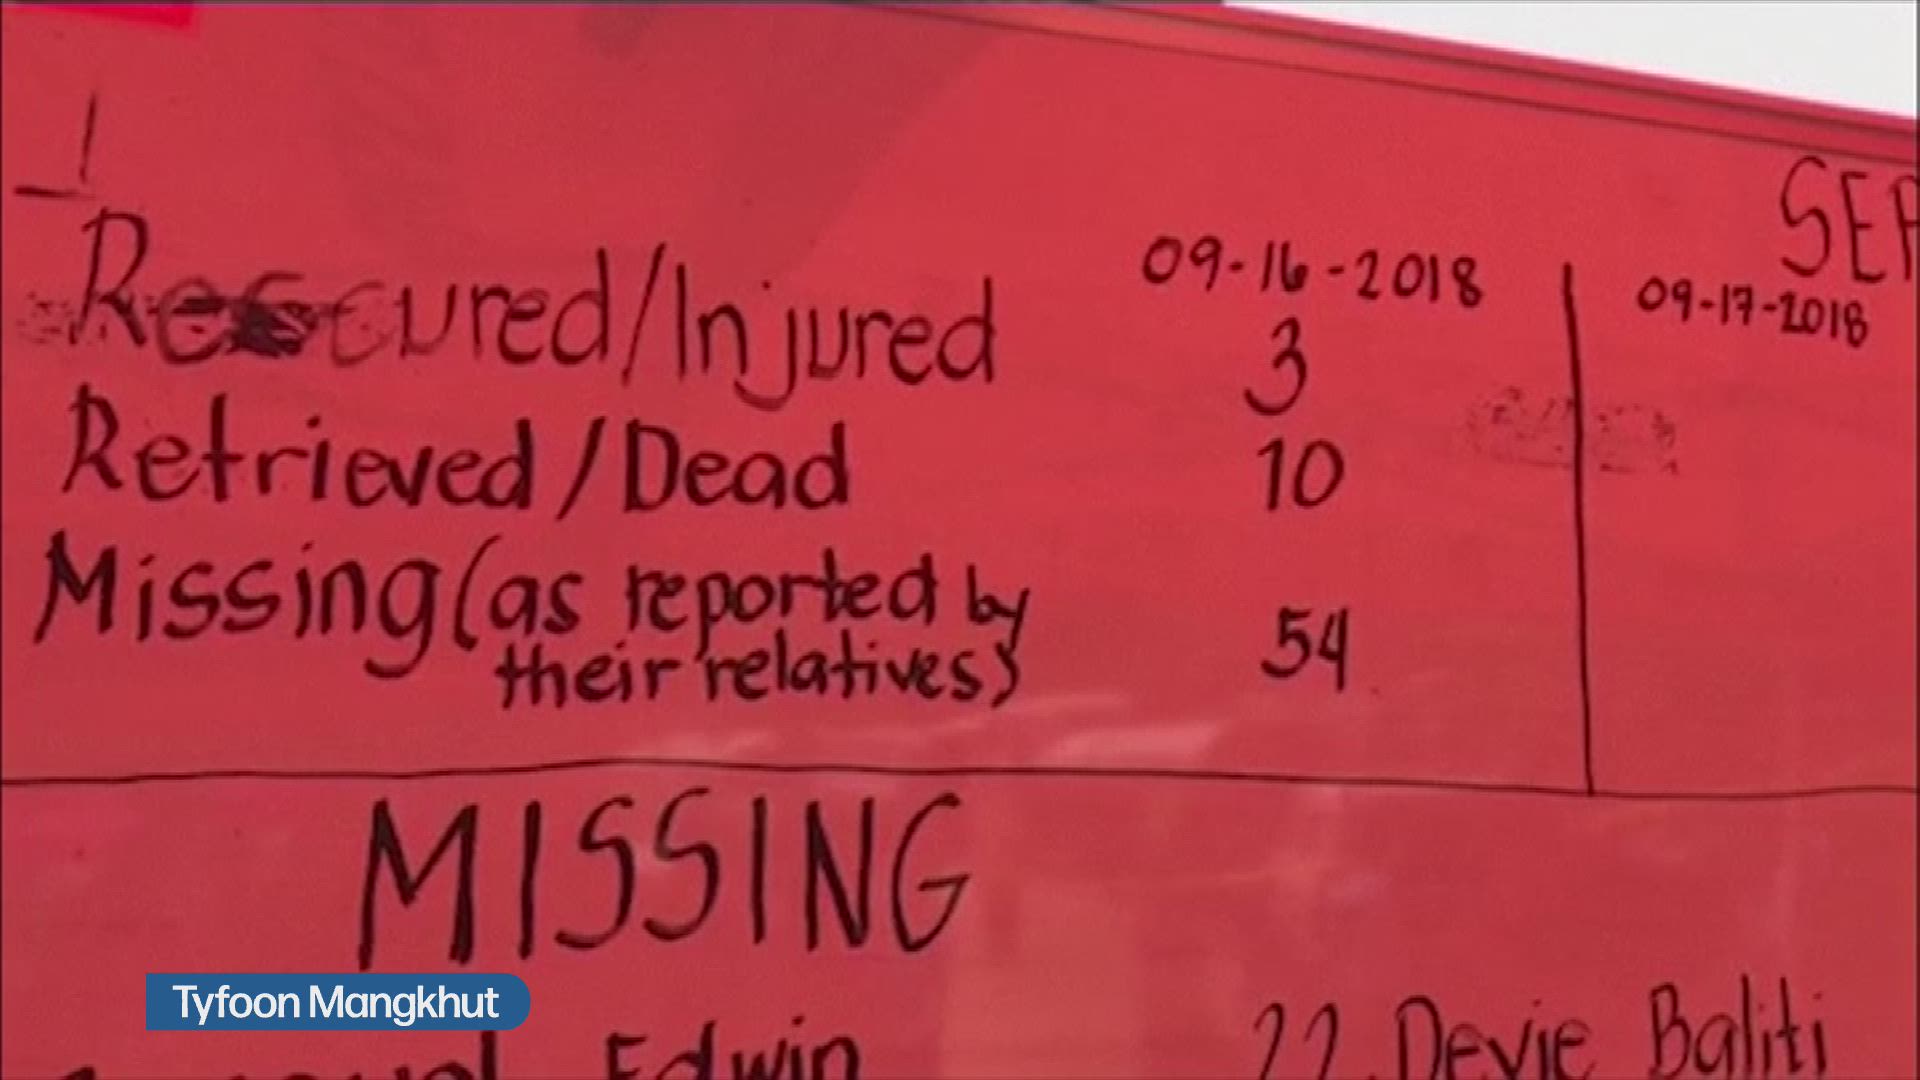 SEP
09-16-2018 09-17-2018
Rescured/Injured 3
Retrieved/Dead 10
Missing (as reported by
their relatives) 54
MISSING
Edwin 22. Devie Baliti
Tyfoon Mangkhut